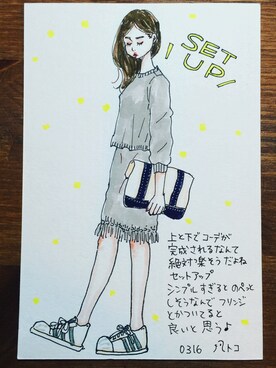 SET
UP
上と下でコーデが
完成されるなんて
絶対楽そうだよね
セットアップ
シンプルすぎるとのぺっと
しそうなんで フリンジ
とかついてると
良いと思うよ
0316